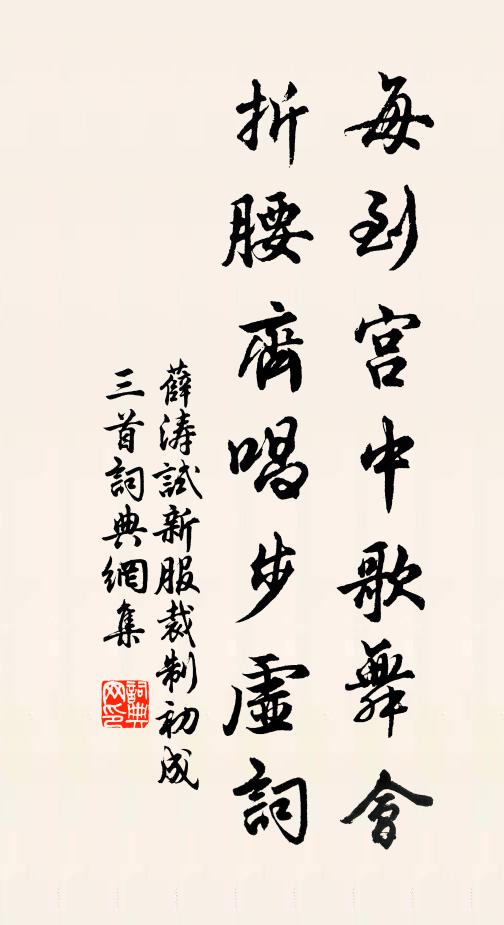 每到宫中歌舞會
折腰齊唱步虛詞
薛涛試新服裁制初成
三首詞典網集
詞典网印